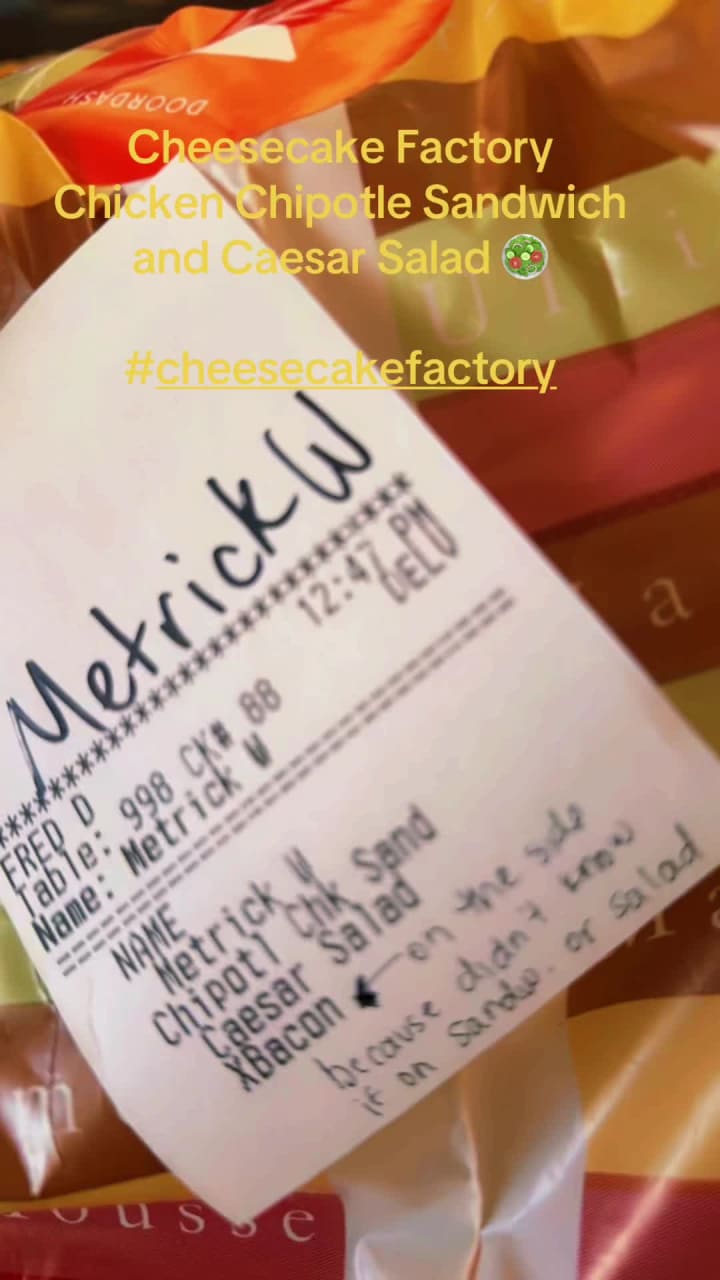 DOORDASH
Cheesecake Factory
Chicken Chipotle Sandwich
and Caesar Salad 🥗
#cheesecakefactory
Metrick W
***********************
12:47 PM
DELV
FRED D
Table: 998 CK# 88
Name: Metrick W
==============================
NAME
Metrick W
Chipotl Chk Sand
Caesar Salad
XBacon ← on the side
because didn't know
if on sandw. or salad
U l t i
a
m
ousse